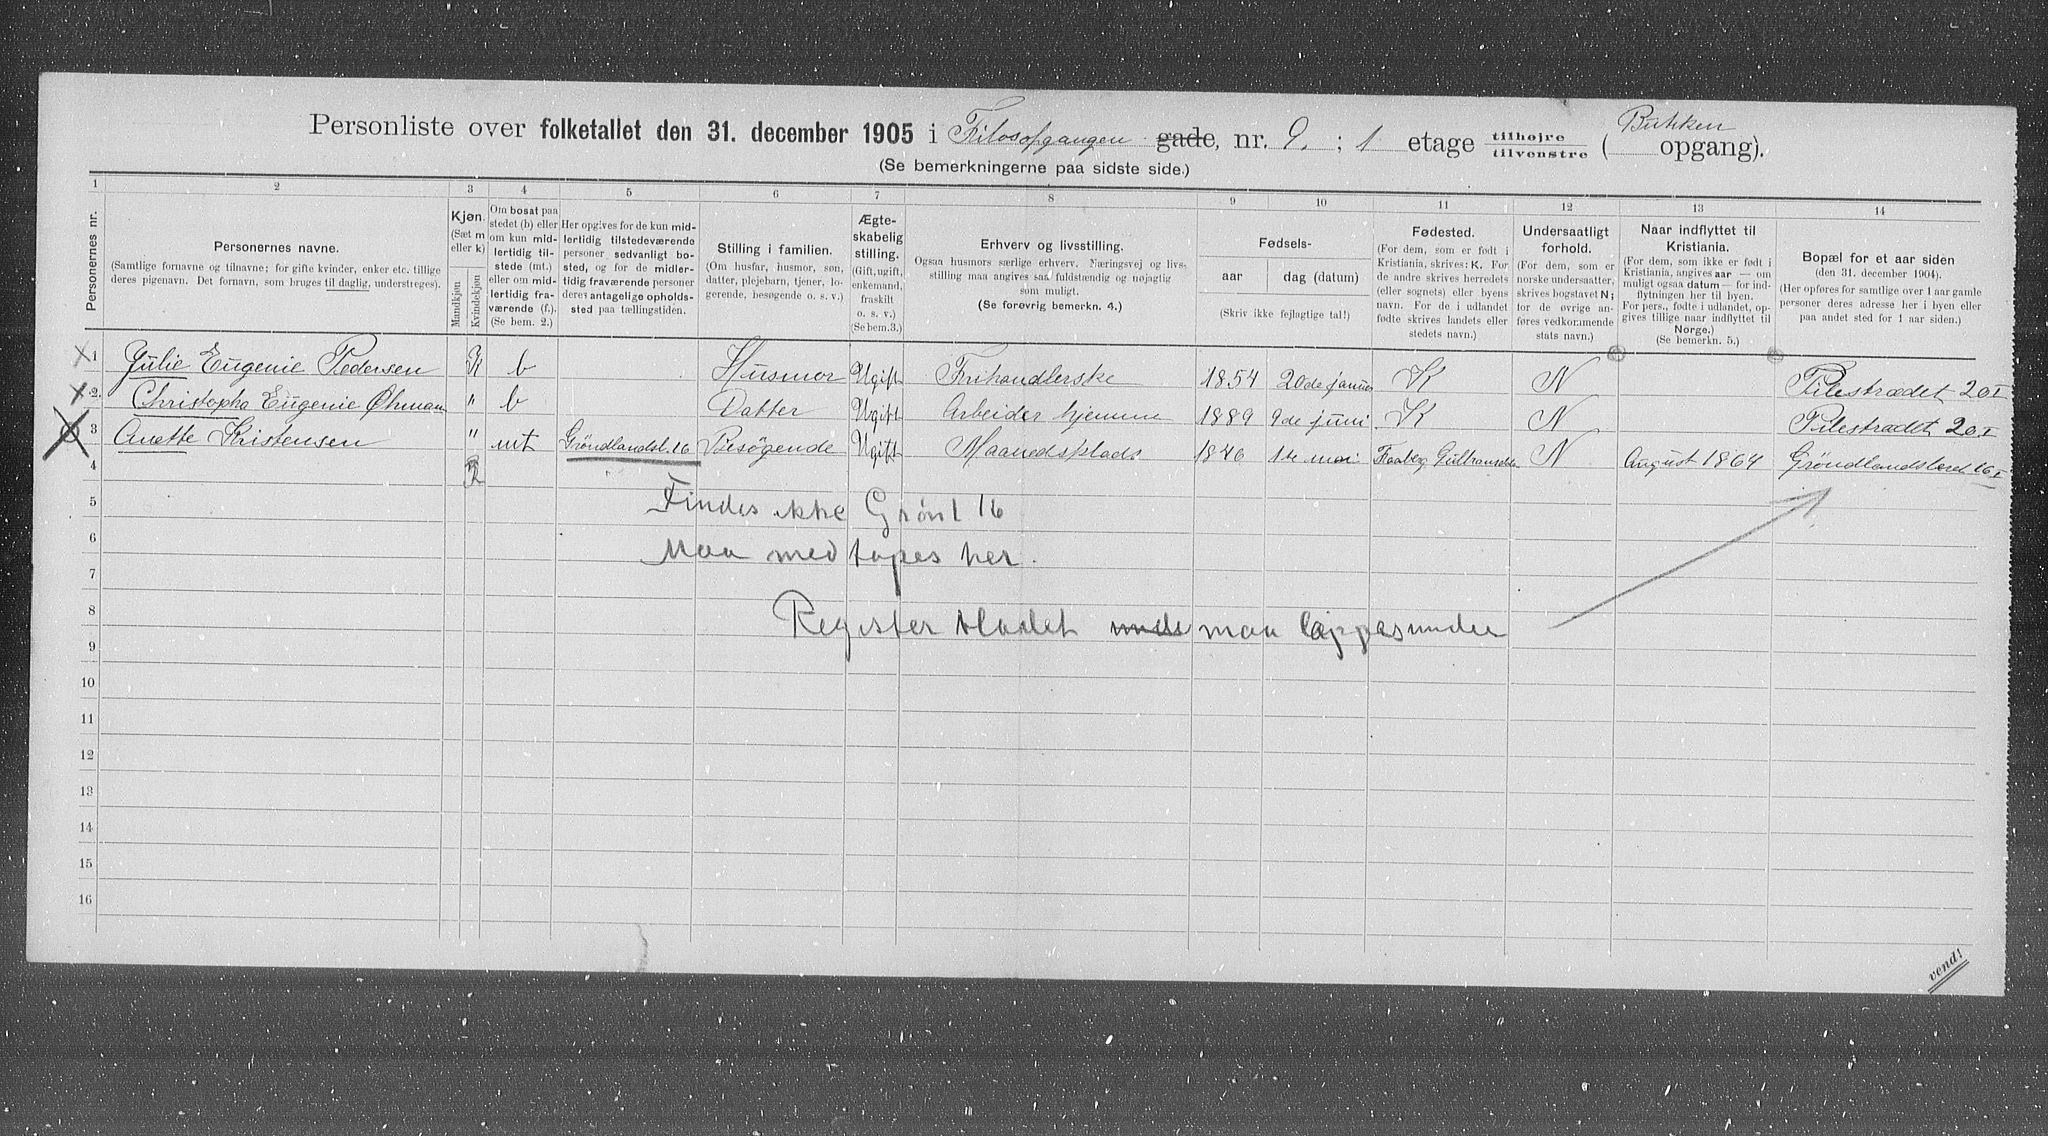 Personliste over folketallet den 31. december 1905 i Filosofgangen gade, nr. 9. ; 1 etage tilhøjre tilvenstre ( opgang).
(Se bemerkningerne paa sidste side.)
1 2 3 4 5 6 7 8 9 10 11 12 13 14
Personernes nr.
Personernes navne.
(Samtlige fornavne og tilnavne; for gifte kvinder, enker etc. tillige
deres pigenavn. Det fornavn, som bruges til daglig, understreges).
Kjøn.
(Sæt m
eller k)
Mandkjøn
Kvindekjøn
Om bosat paa
stedet (b) eller
om kun mid-
lertidig til-
stede (mt.)
eller om mid-
lertidig fra-
værende (f.).
(Se bem. 2.)
Her opgives for de kun mid-
lertidig tilstedeværende
personer sedvanligt bo-
sted, og for de midler-
tidig fraværende personer
deres antagelige opholds-
sted paa tællingstiden.
Stilling i familien.
(Om husfar, husmor, søn,
datter, plejebarn, tjener, lo-
gerende, besøgende o. s. v.)
Ægte-
skabelig
stilling.
(Gift, ugift,
enkemand,
fraskilt
o. s. v.)
(Se bem. 3.)
Erhverv og livsstilling.
Ogsaa husmors særlige erhverv. Næringsvej og livs-
stilling maa angives saa fuldstændig og nøjagtig
som muligt.
(Se forøvrig bemerkn. 4.)
Fødsels-
aar
dag (datum)
(Skriv ikke fejlagtige tal!)
Fødested.
(For dem, som er født i
Kristiania, skrives: K. For
de andre skrives herredets
(eller sognets) eller byens
navn. For de i udlandet
fødte skrives landets eller
stedets navn.)
Undersaatligt
forhold.
(For dem, som er
norske undersaatter,
skrives bogstavet N;
for de øvrige an-
føres vedkommende
stats navn.)
Naar indflyttet til
Kristiania.
(For dem, som ikke er født i
Kristiania, angives aar — om
muligt ogsaa datum — for ind-
flytningen her til byen.
For pers., fødte i udlandet, op-
gives tillige naar indflyttet til
Norge.)
(Se bemerkn. 5.)
Bopæl for et aar siden
(den 31. december 1904).
(Her opføres for samtlige over 1 aar gamle
personer deres adresse her i byen eller
paa andet sted for 1 aar siden.)
1 Julie Eugenie Pedersen K b Husmor Ugift Frihandlerske 1854 20de januar K N Pilestrædet 20 I
2. Christopha Eugenie Öhman " b Datter Ugift Arbeider hjemme 1889 9de juni K N Pilestrædet 20 I
3 Anette Kristensen " mt Gröndlandsl. 16 Besögende Ugift Maanedsplads 1846 14 mai Faaberg N August 1864 Gröndlandsleret 16 I
4 K
5 Findes ikke Grønl 16
6 Maa med tages her.
7
8 Register bladet maa lappes under
9
10
11
12
13
14
15
16
vend!